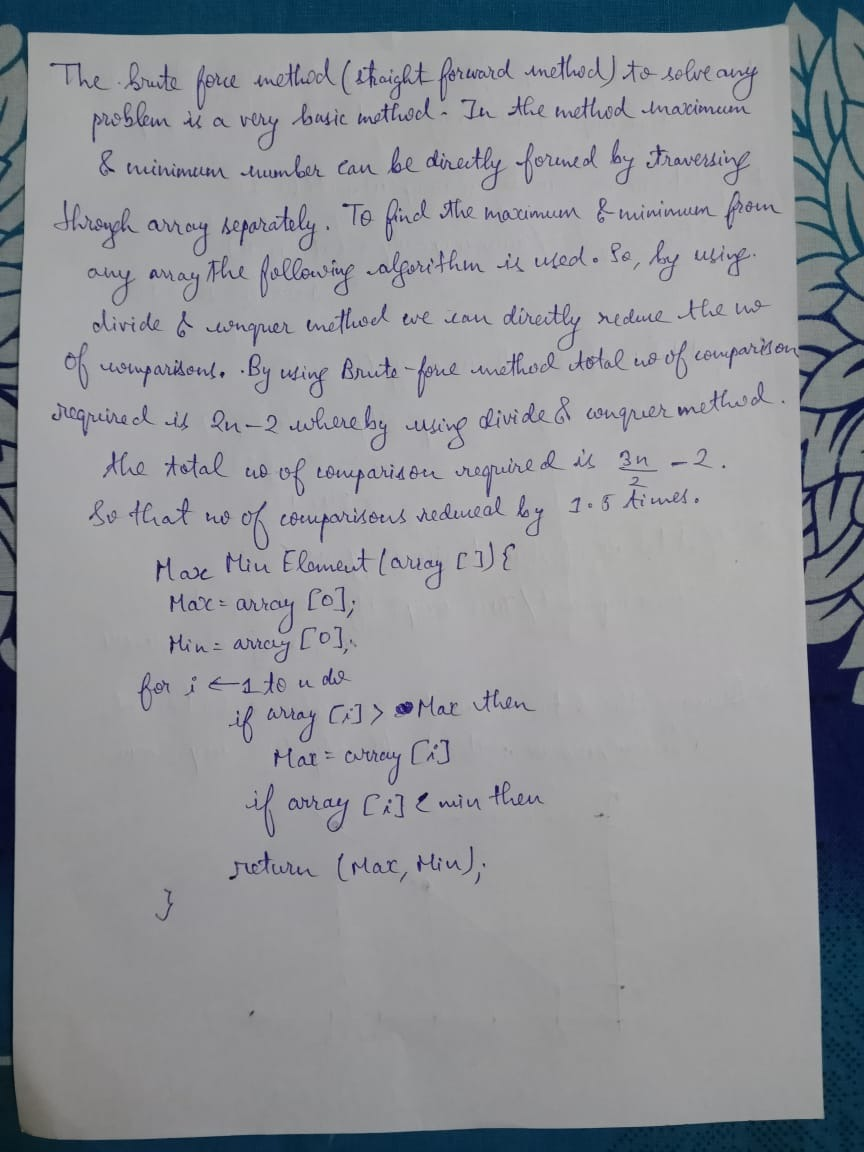 The brute force method (straight forward method) to solve any
problem is a very basic method. In the method maximum
& minimum number can be directly formed by traversing
through array separately. To find the maximum & minimum from
any array the following algorithm is used. So, by using.
divide & conquer method we can directly reduce the no
of comparisons. By using Brute-force method total no of comparison
required is 2n-2 whereby using divide & conquer method.
the total no of comparison required is 3n/2 - 2.
So that no of comparisons reduced by 1.5 times.
Max Min Element (array []){
Max = array [0];
Min = array [0];
for i ← 1 to n do
if array [i] > Max then
Max = array [i]
if array [i] < min then
return (Max, Min);
}